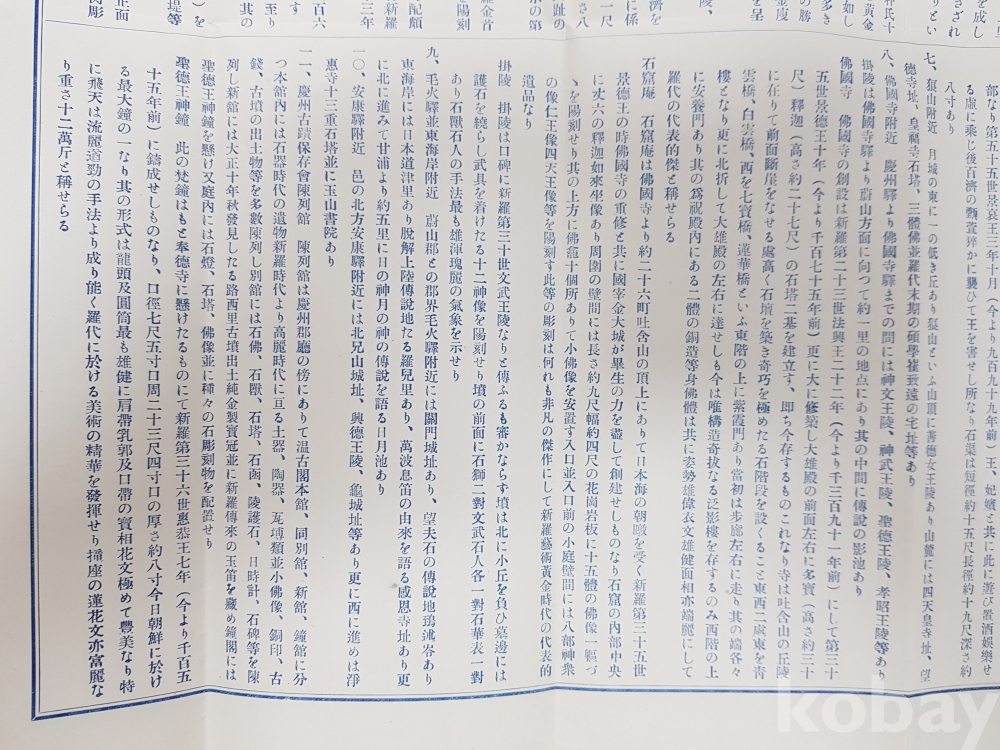 部なり第五十五世景哀王三年十月（今より九百九十九年前）王、妃嬪と共に此に遊び置酒娯樂せ
る虛に乘じ後百濟の甄萱猝かに襲ひて王を害せし所なり石渠は短徑約十五尺長徑約十九尺深さ約
八寸あり
七、狼山附近　月城の東に一の低き丘あり狼山といふ山頂に善德女王陵あり山麓には四天皇寺址、望
德寺址、皇福寺石塔、三體佛並羅代末期の碩學崔致遠の宅址等あり
八、佛國寺附近　慶州驛より佛國寺驛までの間には神文王陵、神武王陵、聖德王陵、孝昭王陵等あり
掛陵は佛國寺驛より蔚山方面に向つて約一里の地点にあり其の中間に傳說の影池あり
佛國寺　佛國寺の創設は新羅第二十三世法興王二十二年（今より千三百九十一年前）にして第三十
五世景德王十年（今より千百七十五年前）更に大に修築し大雄殿の前面左右に多寶（高さ約三十
尺）釋迦（高さ約二十七尺）の石塔二基を建立す、即ち今存するものこれなり寺は吐含山の丘陵
に在りて前面斷崖をなせる處高く石壇を築き奇巧を極めたる石階段を設くること東西二處東を青
雲橋、白雲橋、西を七寶橋、蓮華橋といふ東階の上に紫霞門あり當初は步廊左右に走り其の端各々
樓となり更に北折して大雄殿の左右に達せしも今は唯構造奇拔なる泛影樓を存するのみ西階の上
に安養門あり其の爲祝殿內にある二體の銅造等身佛體は共に姿勢雄偉衣文雄健面相亦端麗にして
羅代の代表的傑と稱せらる
石窟庵　石窟庵は佛國寺より約二十六町吐含山の頂上にありて日本海の朝暾を受く新羅第三十五世
景德王の時佛國寺の重修と共に國宰金大城が畢生の力を盡して創建せしものなり石窟の內部中央
に丈六の釋迦如來坐像あり周圍の壁間には長さ約九尺幅約四尺の花崗岩板に十五體の佛像一軀づ
ゝを陽刻せり其の上方に佛龕十個所ありて小佛像を安置す入口並入口前の小庭壁間には八部神衆
の像仁王像四天王像等を陽刻す此等の彫刻は何れも非凡の傑作にして新羅藝術黃金時代の代表的
遺品なり
掛陵　掛陵は口碑に新羅第三十世文武王陵なりと傳ふるも審かならず墳は北に小丘を負ひ墓邊には
護石を繞らし武具を着けたる十二神像を陽刻せり墳の前面に石獅二對文武石人各一對石華表一對
あり石獸石人の手法最も雄渾瑰麗の氣象を示せり
九、毛火驛並東海岸附近　蔚山郡との郡界毛火驛附近には關門城址あり、望夫石の傳說地鵄述岺あり
東海岸には日本道津里あり脫解上陸傳說地たる羅兒里あり、萬波息笛の由來を語る感恩寺址あり更
に北に進みて甘浦より約五里に日の神月の神の傳說を語る日月池あり
一〇、安康驛附近　邑の北方安康驛附近には北兄山城址、興德王陵、龜城址等あり更に西に進めは淨
惠寺十三重石塔並に玉山書院あり
一一、慶州古蹟保存會陳列館　陳列館は慶州郡廳の傍にありて温古閣本館、同別館、新館、鐘館に分
つ本館內には石器時代の遺物新羅時代より高麗時代に亘る土器、陶器、瓦塼類並小佛像、銅印、古
錢、古墳の出土物等を多數陳列し別館には石佛、石獸、石塔、石凾、陵護石、日時計、石碑等を陳
列し新館には大正十年秋發見したる路西里古墳出土純金製寶冠並に新羅傳來の玉笛を藏め鐘閣には
聖德王神鐘を懸け又庭內には石燈、石塔、佛像並に種々の石彫刻物を配置せり
聖德王神鐘　此の梵鐘はもと奉德寺に懸けたるものにて新羅第三十六世惠恭王七年（今より千百五
十五年前）に鑄成せしものなり、口徑七尺五寸口周二十三尺四寸口の厚さ約八寸今日朝鮮に於け
る最大鐘の一なり其の形式は龍頭及圓筒最も雄健に肩帶乳郭及口帶の寶相花文極めて豐美なり特
に飛天は流麗遒勁の手法より成り能く羅代に於ける美術の精華を發揮せり撞座の蓮花文亦富麗な
り重さ十二萬斤と稱せらる
kobay